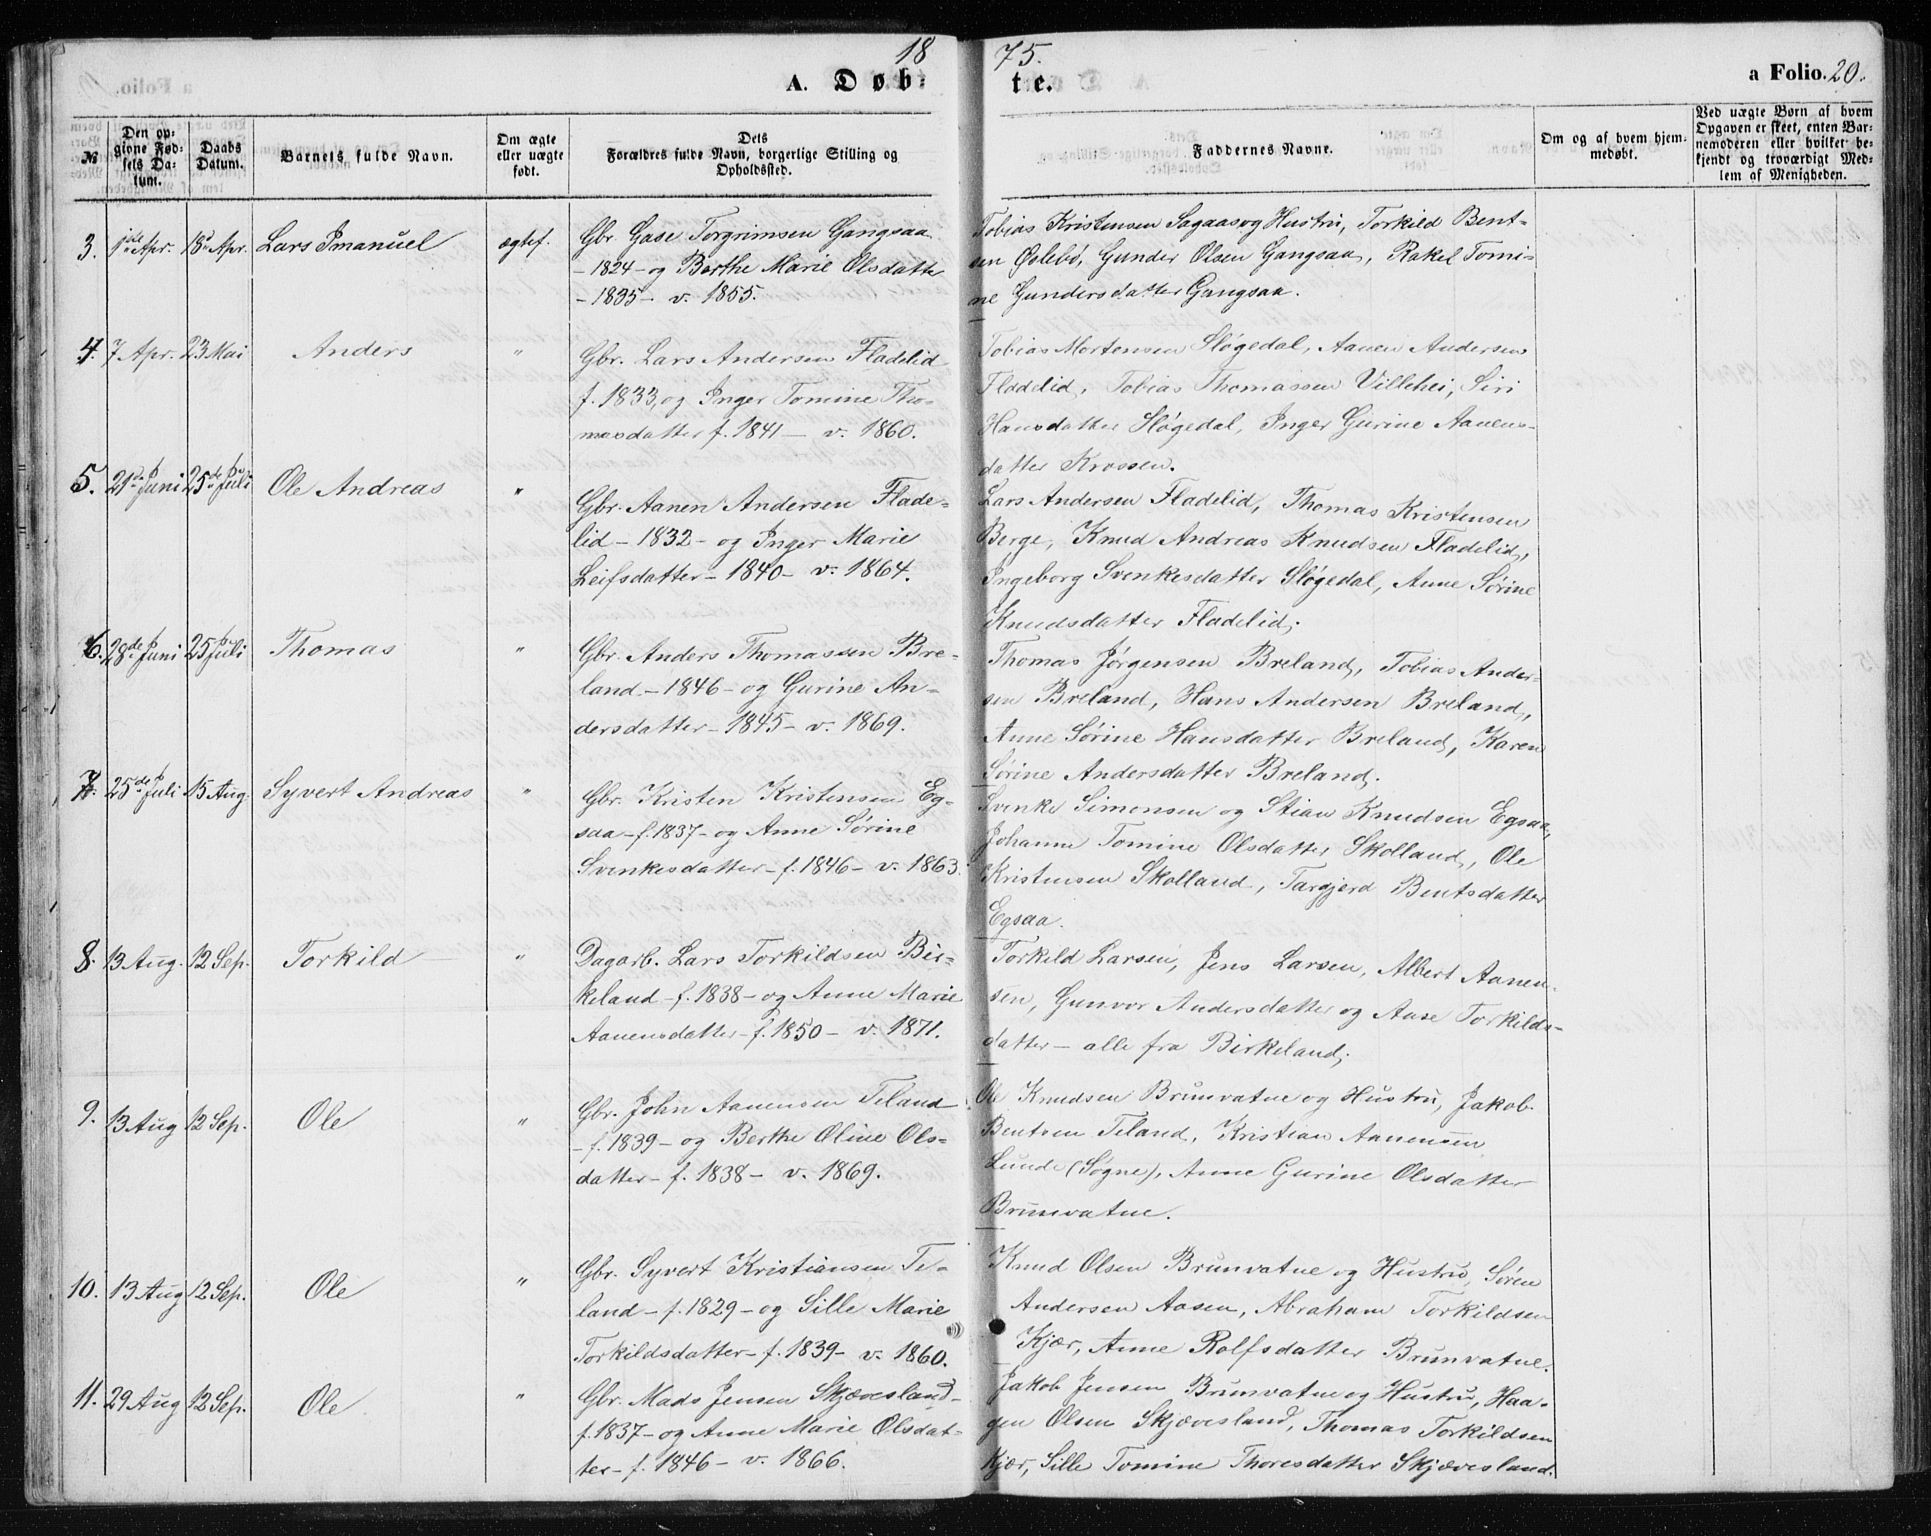 18 75.
A. Døb-
te.
a Folio. 20.
№
Den op-
givne Fød-
sels Da-
tum.
Daabs
Datum.
Barnets fulde Navn.
Om ægte
eller uægte
født.
Dets
Forældres fulde Navn, borgerlige Stilling og
Opholdssted.
Faddernes Navne.
Om og af hvem hjem-
medøbt.
Ved uægte Børn af hvem
Opgaven er skeet, enten Bar-
nemoderen eller hvilket be-
kjendt og troværdigt Med-
lem af Menigheden.
3. 1ste Apr. 18de Apr. Lars Imanuel ægtef.
Gbr. Gase Torgrimsen Gangsaa
- 1824 - og Berthe Marie Olsdatter
- 1835 - v. 1855.
Tobias Kristensen Sagaas og Hustru, Torkild Bent-
sen Øvlebø, Gunder Olsen Gangsaa, Rakel Tomi-
ne Gundersdatter Gangsaa.
4. 7 Apr. 23 Mai Anders "
Gbr. Lars Andersen Fladelid
f. 1833, og Inger Tomine Tho-
masdatter f. 1841 - v. 1860.
Tobias Mortensen Sløgedal, Aanen Andersen
Fladelid, Tobias Thomassen Villehei, Siri
Hansdatter Sløgedal, Inger Gurine Aanens-
datter Krossen.
5. 21de Juni 25de Juli Ole Andreas "
Gbr. Aanen Andersen Flade-
lid - 1832 - og Inger Marie
Leifsdatter - 1840 - v. 1864.
Lars Andersen Fladelid, Thomas Kristensen
Berge, Knud Andreas Knudsen Fladelid,
Ingeborg Svenkesdatter Sløgedal, Anne Sørine
Knudsdatter Fladelid.
6. 28de Juni 25 Juli Thomas "
Gbr. Anders Thomassen Bre-
land - 1846 - og Gurine An-
dersdatter - 1845 - v. 1869.
Thomas Jørgensen Breland, Tobias Ander-
sen Breland, Hans Andersen Breland,
Anne Sørine Hansdatter Breland, Karen
Sørine Andersdatter Breland.
7. 25de Juli 15 Aug. Syvert Andreas "
Gbr. Kristen Kristensen Eg-
saa - f. 1837 - og Anne Sørine
Svenkesdatter - f. 1846 - v. 1863.
Svenke Simonsen og Stian Knudsen Egsaa,
Johanne Tomine Olsdatter Skolland, Ole
Kristensen Skolland, Targjerd Bentsdatter
Egsaa.
8. 13 Aug. 12 Sep. Torkild "
Dagarb. Lars Torkildsen Bir-
keland - f. 1838 - og Anne Marie
Aanensdatter - f. 1850 - v. 1871.
Torkild Larsen, Jens Larsen, Albert Aanen-
sen, Gunvor Andersdatter og Aase Torkilds-
datter - alle fra Birkeland.
9. 13 Aug 12 Sep. Ole "
Gbr. John Aanensen Teland
- f. 1839 - og Berthe Oline Ols-
datter - f. 1838 - v. 1869.
Ole Knudsen Brunvatne og Hustru, Jakob
Bentsen Teland, Kristian Aanensen
Lunde (Søgne), Anne Gurine Olsdatter
Brunvatne.
10. 13 Aug 12 Sep. Ole "
Gbr. Syvert Kristiansen Te-
land - f. 1829 - og Sille Marie
Torkildsdatter - f. 1839 - v. 1860.
Knud Olsen Brunvatne og Hustru, Søren
Andersen Aasen, Abraham Torkildsen
Kjær, Anne Rolfsdatter Brunvatne.
11. 29 Aug 12 Sep. Ole "
Gbr. Mads Jensen Skjævesland -
f. 1837 - og Anne Marie Olsdat-
ter - f. 1846 - v. 1866.
Jakob Jensen Brunvatne og Hustru, Haa-
gen Olsen Skjævesland, Thomas Torkildsen
Kjær, Sille Tomine Thoresdatter Skjævesland.